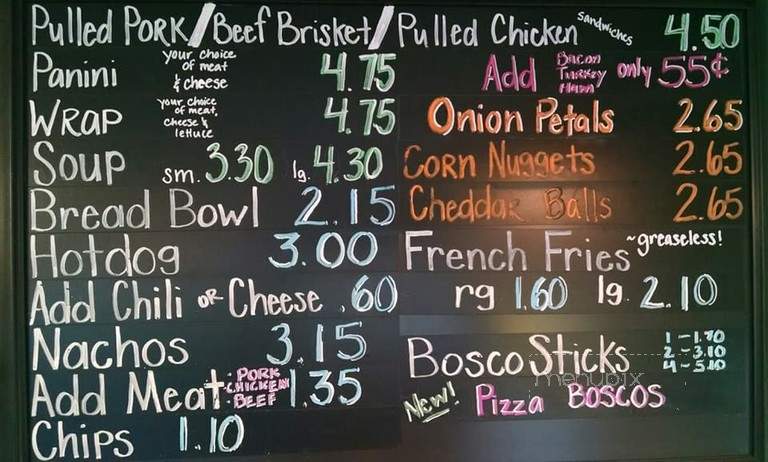 Pulled Pork/Beef Brisket/Pulled Chicken sandwiches 4.50
Panini your choice of meat & cheese 4.75
Add Bacon Turkey Ham only 55¢
Wrap your choice of meat, cheese & lettuce 4.75
Onion Petals 2.65
Soup sm. 3.30 lg. 4.30
Corn Nuggets 2.65
Bread Bowl 2.15
Cheddar Balls 2.65
Hotdog 3.00
French Fries ~greaseless!
Add Chili or Cheese .60
rg 1.60 lg. 2.10
Nachos 3.15
Bosco Sticks 1-1.70
2-3.10
4-5.10
Add Meat+ PORK CHICKEN BEEF 1.35
New! Pizza Boscos
Chips 1.10
menupix